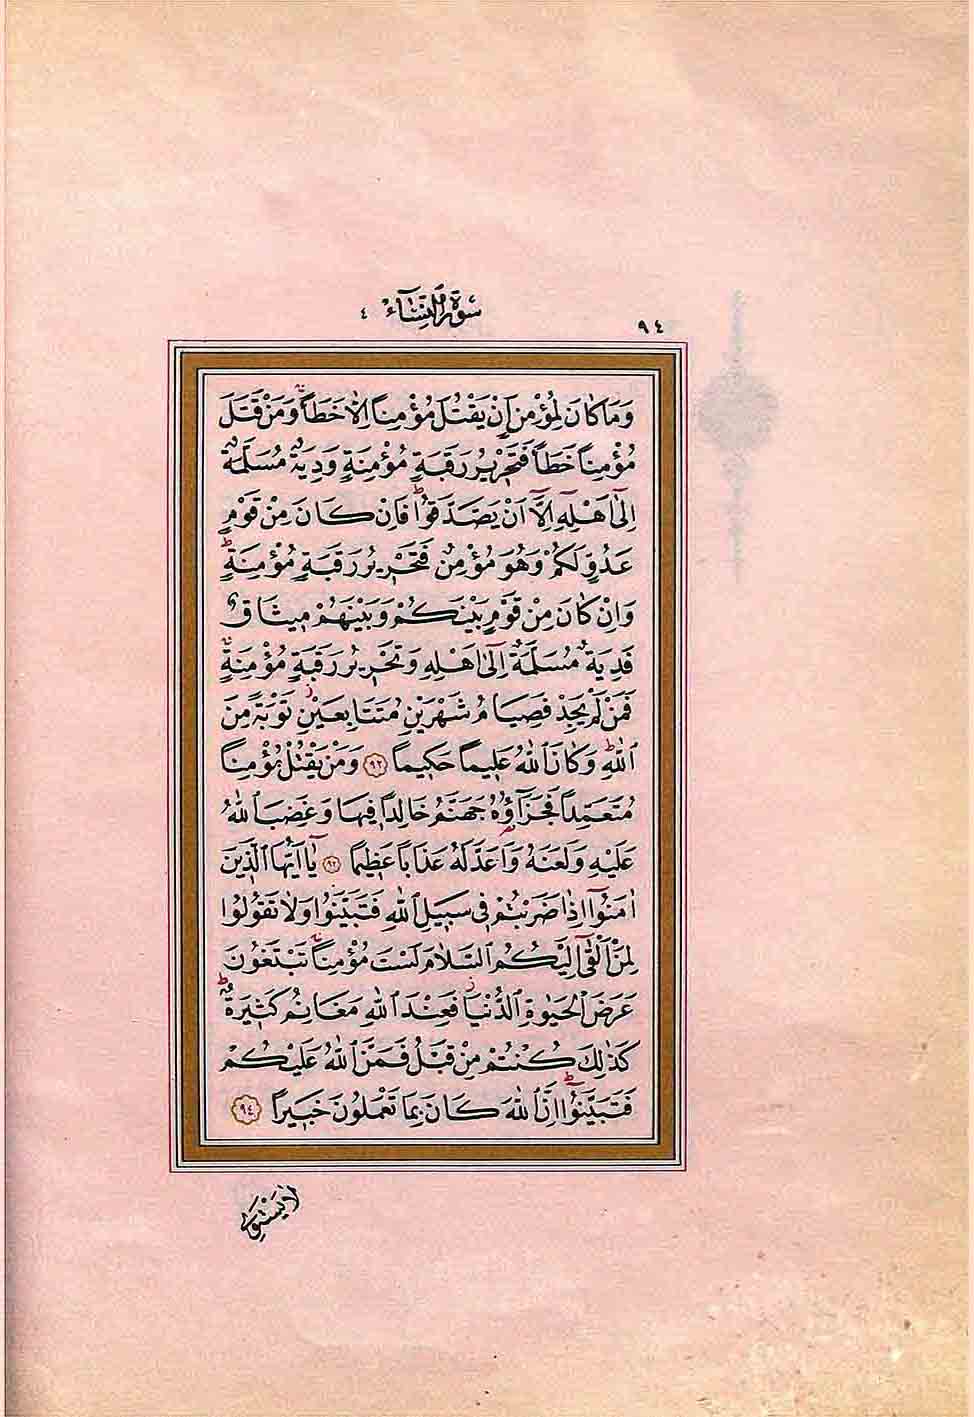 سورة النساء ٤
٩٤
وَمَا كَانَ لِمُؤْمِنٍ اَنْ يَقْتُلَ مُؤْمِنًا اِلَّا خَطَـًٔا وَمَنْ قَتَلَ
مُؤْمِنًا خَطَـًٔا فَتَحْرٖيرُ رَقَبَةٍ مُؤْمِنَةٍ وَدِيَةٌ مُسَلَّمَةٌ
اِلٰٓى اَهْلِهٖٓ اِلَّٓا اَنْ يَصَّدَّقُواؕ فَاِنْ كَانَ مِنْ قَوْمٍ
عَدُوٍّ لَكُمْ وَهُوَ مُؤْمِنٌ فَتَحْرٖيرُ رَقَبَةٍ مُؤْمِنَةٍؕ
وَاِنْ كَانَ مِنْ قَوْمٍ بَيْنَكُمْ وَبَيْنَهُمْ مٖيثَاقٌ
فَدِيَةٌ مُسَلَّمَةٌ اِلٰٓى اَهْلِهٖ وَتَحْرٖيرُ رَقَبَةٍ مُؤْمِنَةٍۚ
فَمَنْ لَمْ يَجِدْ فَصِيَامُ شَهْرَيْنِ مُتَتَابِعَيْنِؗ تَوْبَةً مِنَ
اللّٰهِؕ وَكَانَ اللّٰهُ عَلٖيمًا حَكٖيمًا ﴿٩٢﴾ وَمَنْ يَقْتُلْ مُؤْمِنًا
مُتَعَمِّدًا فَجَزَٓاؤُهُ جَهَنَّمُ خَالِدًا فٖيهَا وَغَضِبَ اللّٰهُ
عَلَيْهِ وَلَعَنَهُ وَاَعَدَّ لَهُ عَذَابًا عَظٖيمًا ﴿٩٣﴾ يَٓا اَيُّهَا الَّذٖينَ
اٰمَنُٓوا اِذَا ضَرَبْتُمْ فٖي سَبٖيلِ اللّٰهِ فَتَبَيَّنُوا وَلَا تَقُولُوا
لِمَنْ اَلْقٰٓى اِلَيْكُمُ السَّلَامَ لَسْتَ مُؤْمِنًاۚ تَبْتَغُونَ
عَرَضَ الْحَيٰوةِ الدُّنْيَاؗ فَعِنْدَ اللّٰهِ مَغَانِمُ كَثٖيرَةٌؕ
كَذٰلِكَ كُنْتُمْ مِنْ قَبْلُ فَمَنَّ اللّٰهُ عَلَيْكُمْ
فَتَبَيَّنُواؕ اِنَّ اللّٰهَ كَانَ بِمَا تَعْمَلُونَ خَبٖيرًا ﴿٩٤﴾
لَا يَسْتَوِي